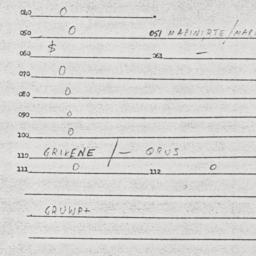 040 0
050 0 051 MAPINIRTE/MAP
060 $ 061 -
070 0
080 0
090 0
100 0
110 GRIVENE /- QRUS
111 0 112 0
GRUWP+